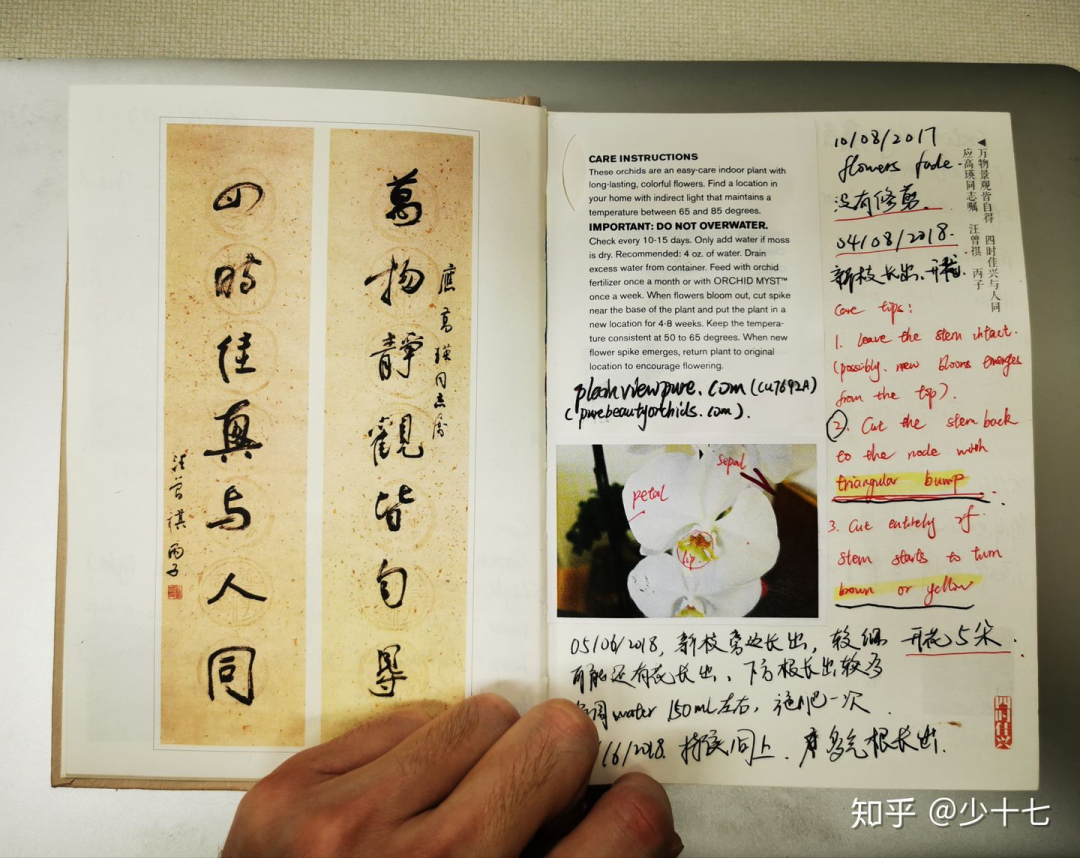 萬物靜觀皆自得
應高瑛同志屬
四時佳興与人同
汪曾祺 丙子
CARE INSTRUCTIONS
These orchids are an easy-care indoor plant with
long-lasting, colorful flowers. Find a location in
your home with indirect light that maintains a
temperature between 65 and 85 degrees.
IMPORTANT: DO NOT OVERWATER.
Check every 10-15 days. Only add water if moss
is dry. Recommended: 4 oz. of water. Drain
excess water from container. Feed with orchid
fertilizer once a month or with ORCHID MYST™
once a week. When flowers bloom out, cut spike
near the base of the plant and put the plant in a
new location for 4-8 weeks. Keep the tempera-
ture consistent at 50 to 65 degrees. When new
flower spike emerges, return plant to original
location to encourage flowering.
(cu7692A)
(purebeautyorchids.com).
petal
sepal
lip
10/08/2017
flowers fade.
没有修剪.
04/08/2018.
新枝长出、开花.
◀万物景观皆自得 四时佳兴与人同
应高瑛同志嘱 汪曾祺 丙子
Care tips:
1. Leave the stem intact.
(possibly. new blooms emerges
from the top).
2. Cut the stem back
to the node with
triangular bump.
3. Cut entirely if
stem starts to turn
brown or yellow
05/06/2018, 新枝旁边长出, 较细 开花5朵.
可能还有花长出、下方根长出较多
water 150ml左右, 施肥一次.
/6/2018. 同上. 多气根长出.
四时佳兴
知乎 @少十七